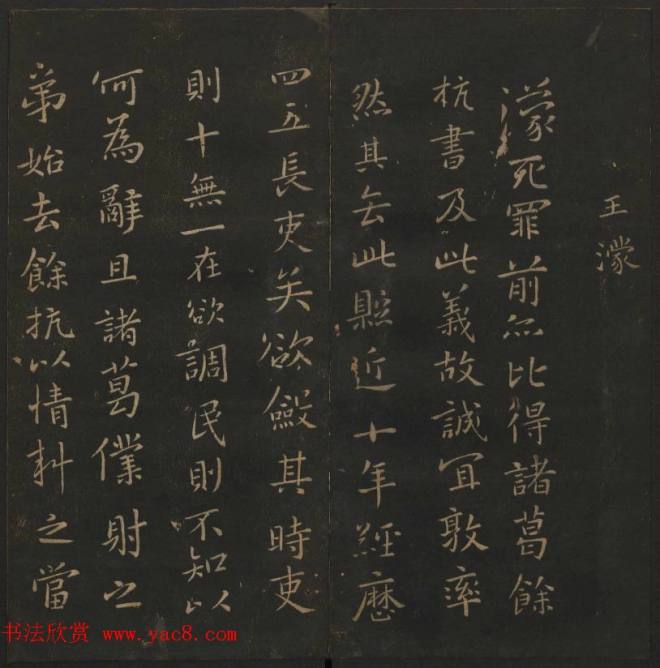 王濛
濛死罪前亦比得諸葛餘
杭書及此義故誠冝敦率
然其去此縣近十年經歷
四五長吏矣欲斂其時吏
則十無一在欲調民則不知以
何為辭且諸葛儻財之
弟始去餘杭以情料之當
书法欣赏 www.yac8.com